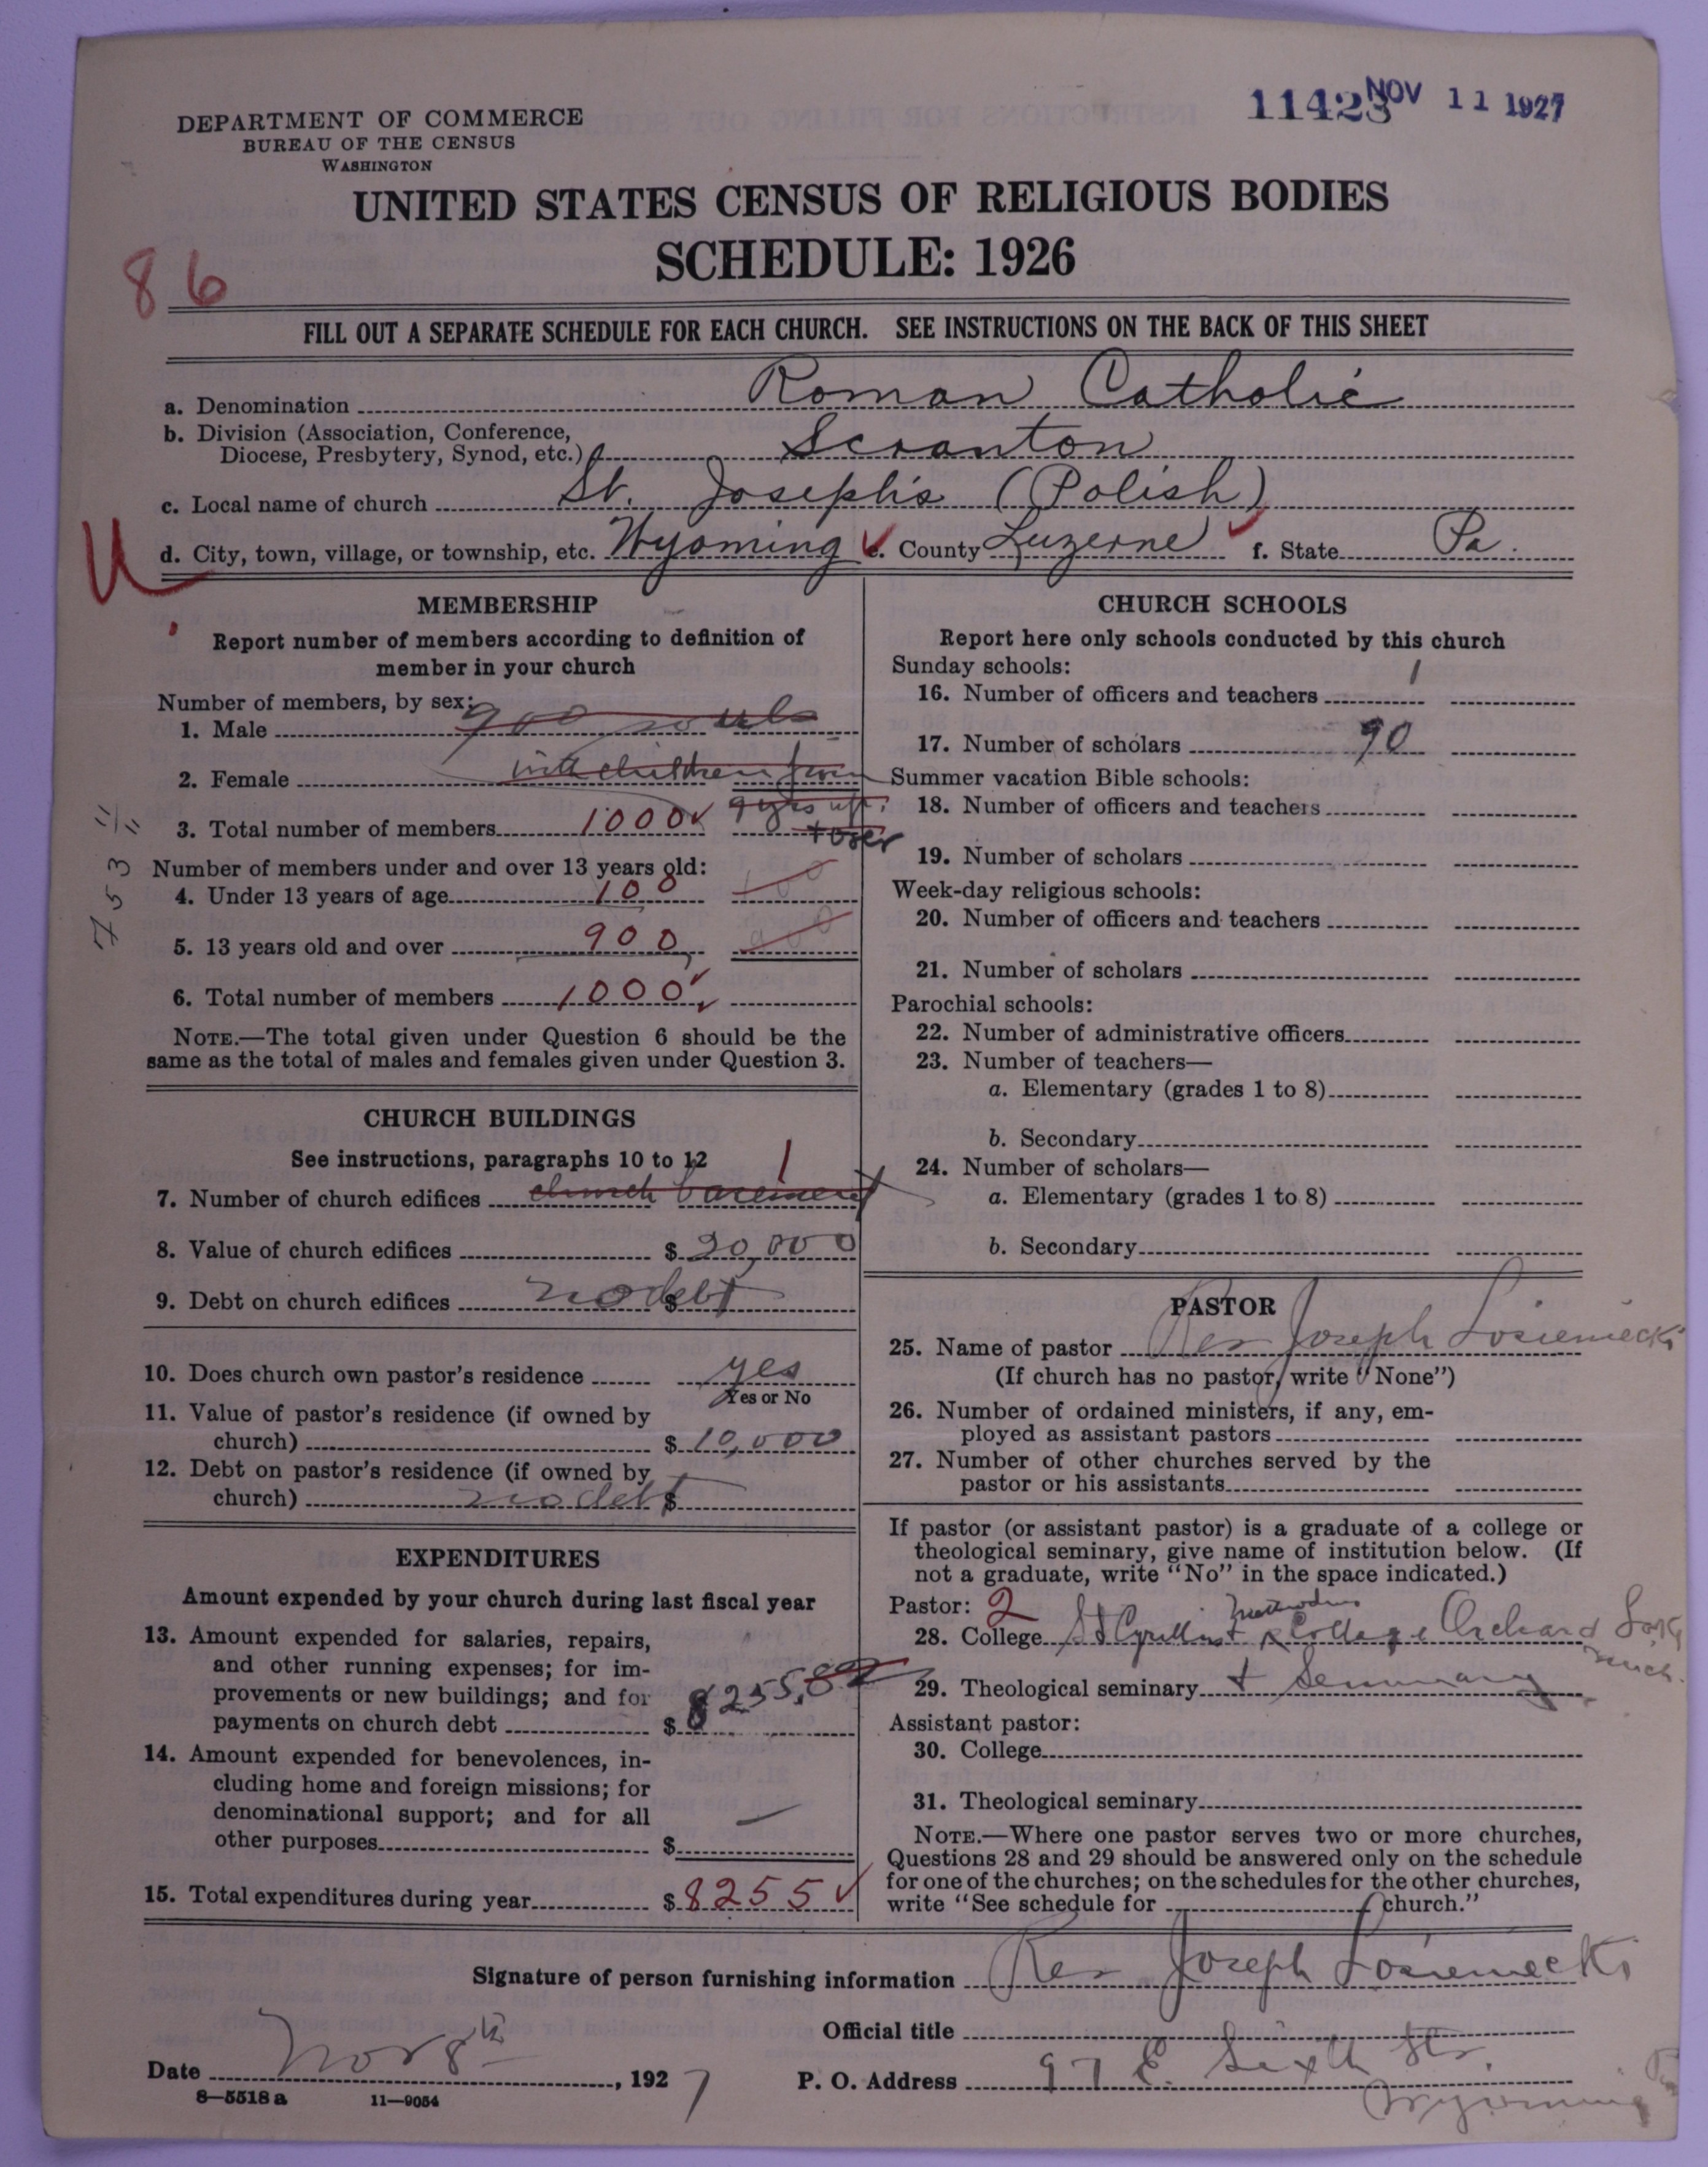 11423 NOV 11 1927
DEPARTMENT OF COMMERCE
BUREAU OF THE CENSUS
WASHINGTON
UNITED STATES CENSUS OF RELIGIOUS BODIES
SCHEDULE: 1926
86
FILL OUT A SEPARATE SCHEDULE FOR EACH CHURCH. SEE INSTRUCTIONS ON THE BACK OF THIS SHEET
a. Denomination Roman Catholic
b. Division (Association, Conference,
Diocese, Presbytery, Synod, etc.) Scranton
c. Local name of church St. Joseph's (Polish)
d. City, town, village, or township, etc. Wyoming e. County Luzerne f. State Pa.
MEMBERSHIP
Report number of members according to definition of
member in your church
Number of members, by sex:
1. Male 900 souls
2. Female with children from
9 yrs up.
3. Total number of members 1000
+ over
Number of members under and over 13 years old:
4. Under 13 years of age 100 100
5. 13 years old and over 900 900
6. Total number of members 1000
753 11/11
NOTE.—The total given under Question 6 should be the
same as the total of males and females given under Question 3.
CHURCH BUILDINGS
See instructions, paragraphs 10 to 12
7. Number of church edifices church basement 1
8. Value of church edifices $ 20,000
9. Debt on church edifices no debt $
10. Does church own pastor's residence yes
Yes or No
11. Value of pastor's residence (if owned by
church) $ 10,000
12. Debt on pastor's residence (if owned by
church) no debt $
EXPENDITURES
Amount expended by your church during last fiscal year
13. Amount expended for salaries, repairs,
and other running expenses; for im-
provements or new buildings; and for
payments on church debt $ 8255.82
14. Amount expended for benevolences, in-
cluding home and foreign missions; for
denominational support; and for all
other purposes $ —
15. Total expenditures during year $ 8255
CHURCH SCHOOLS
Report here only schools conducted by this church
Sunday schools:
16. Number of officers and teachers 1
17. Number of scholars 90
Summer vacation Bible schools:
18. Number of officers and teachers
19. Number of scholars
Week-day religious schools:
20. Number of officers and teachers
21. Number of scholars
Parochial schools:
22. Number of administrative officers
23. Number of teachers—
a. Elementary (grades 1 to 8)
b. Secondary
24. Number of scholars—
a. Elementary (grades 1 to 8)
b. Secondary
PASTOR
25. Name of pastor Rev Joseph Łosieniecki
(If church has no pastor, write "None")
26. Number of ordained ministers, if any, em-
ployed as assistant pastors
27. Number of other churches served by the
pastor or his assistants
If pastor (or assistant pastor) is a graduate of a college or
theological seminary, give name of institution below. (If
not a graduate, write "No" in the space indicated.)
Pastor: 2
28. College St Cyrillus + College Orchard Lake
Mich.
29. Theological seminary + Seminary
Assistant pastor:
30. College
31. Theological seminary
NOTE.—Where one pastor serves two or more churches,
Questions 28 and 29 should be answered only on the schedule
for one of the churches; on the schedules for the other churches,
write "See schedule for church."
Signature of person furnishing information Rev Joseph Łosieniecki
Official title
Date Nov 8th, 1927 P. O. Address 97 E. Sixth Str.
Wyoming Pa
8—5518a 11—9054